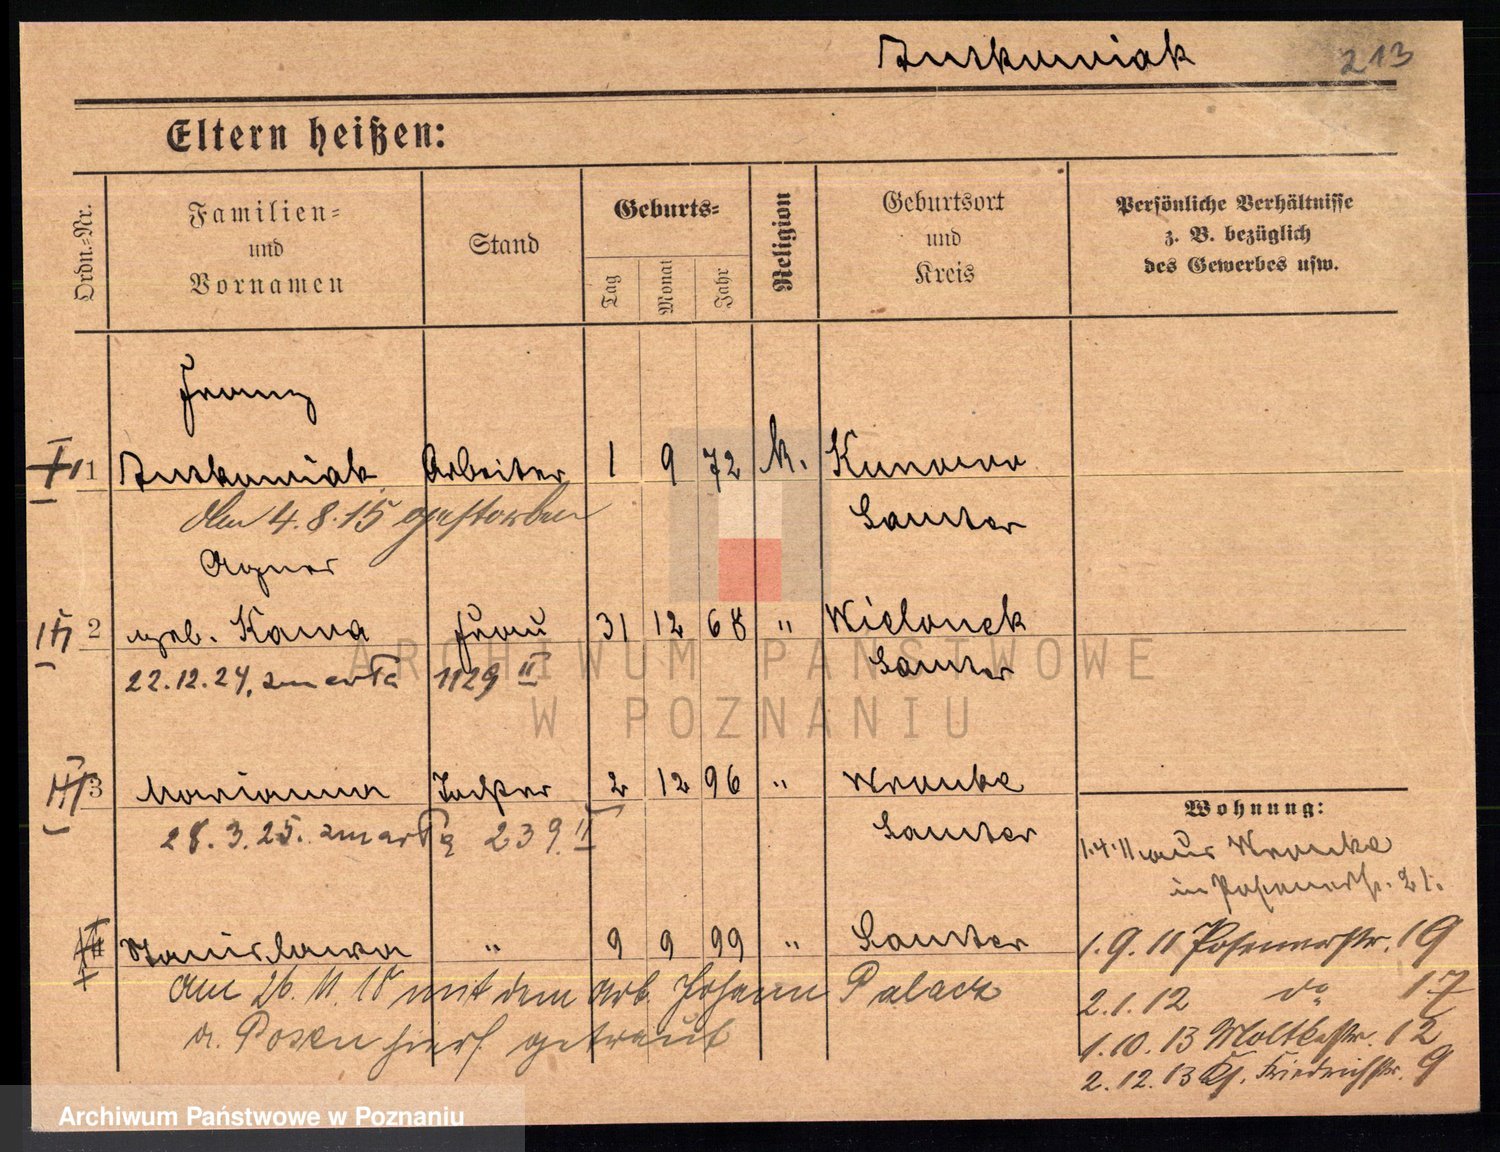 Jurkowiak 213
Eltern heißen:
Ordn.-Nr.
Familien-
und
Vornamen
Stand
Geburts-
Tag
Monat
Jahr
Religion
Geburtsort
und
Kreis
Persönliche Verhältnisse
z. B. bezüglich
des Gewerbes usw.
Franz
1 Arbeiter 1 9 72 k. Kunowo
den 4.8.15 gestorben Samter
Agnes
2 geb. Kawa Frau 31 12 68 " Wielonek
22.12.24, zmarła 1129 II Samter
3 Marianna Tochter 2 12 96 " Wronke
28.3.25. zmarła 239 II Samter
Wohnung:
1.4.11 aus Wronke
in Posenerstr. 21.
Stanislawa " 9 9 99 " Samter
1.9.11 Posenerstr. 19
am 26.11.18 mit dem Arb. Johann Palacz
2.1.12 do 17
a. Posen hier getraut
1.10.13 Moltkestr. 12
2.12.13 Friedrichstr. 9
ARCHIWUM PAŃSTWOWE
W POZNANIU
Archiwum Państwowe w Poznaniu